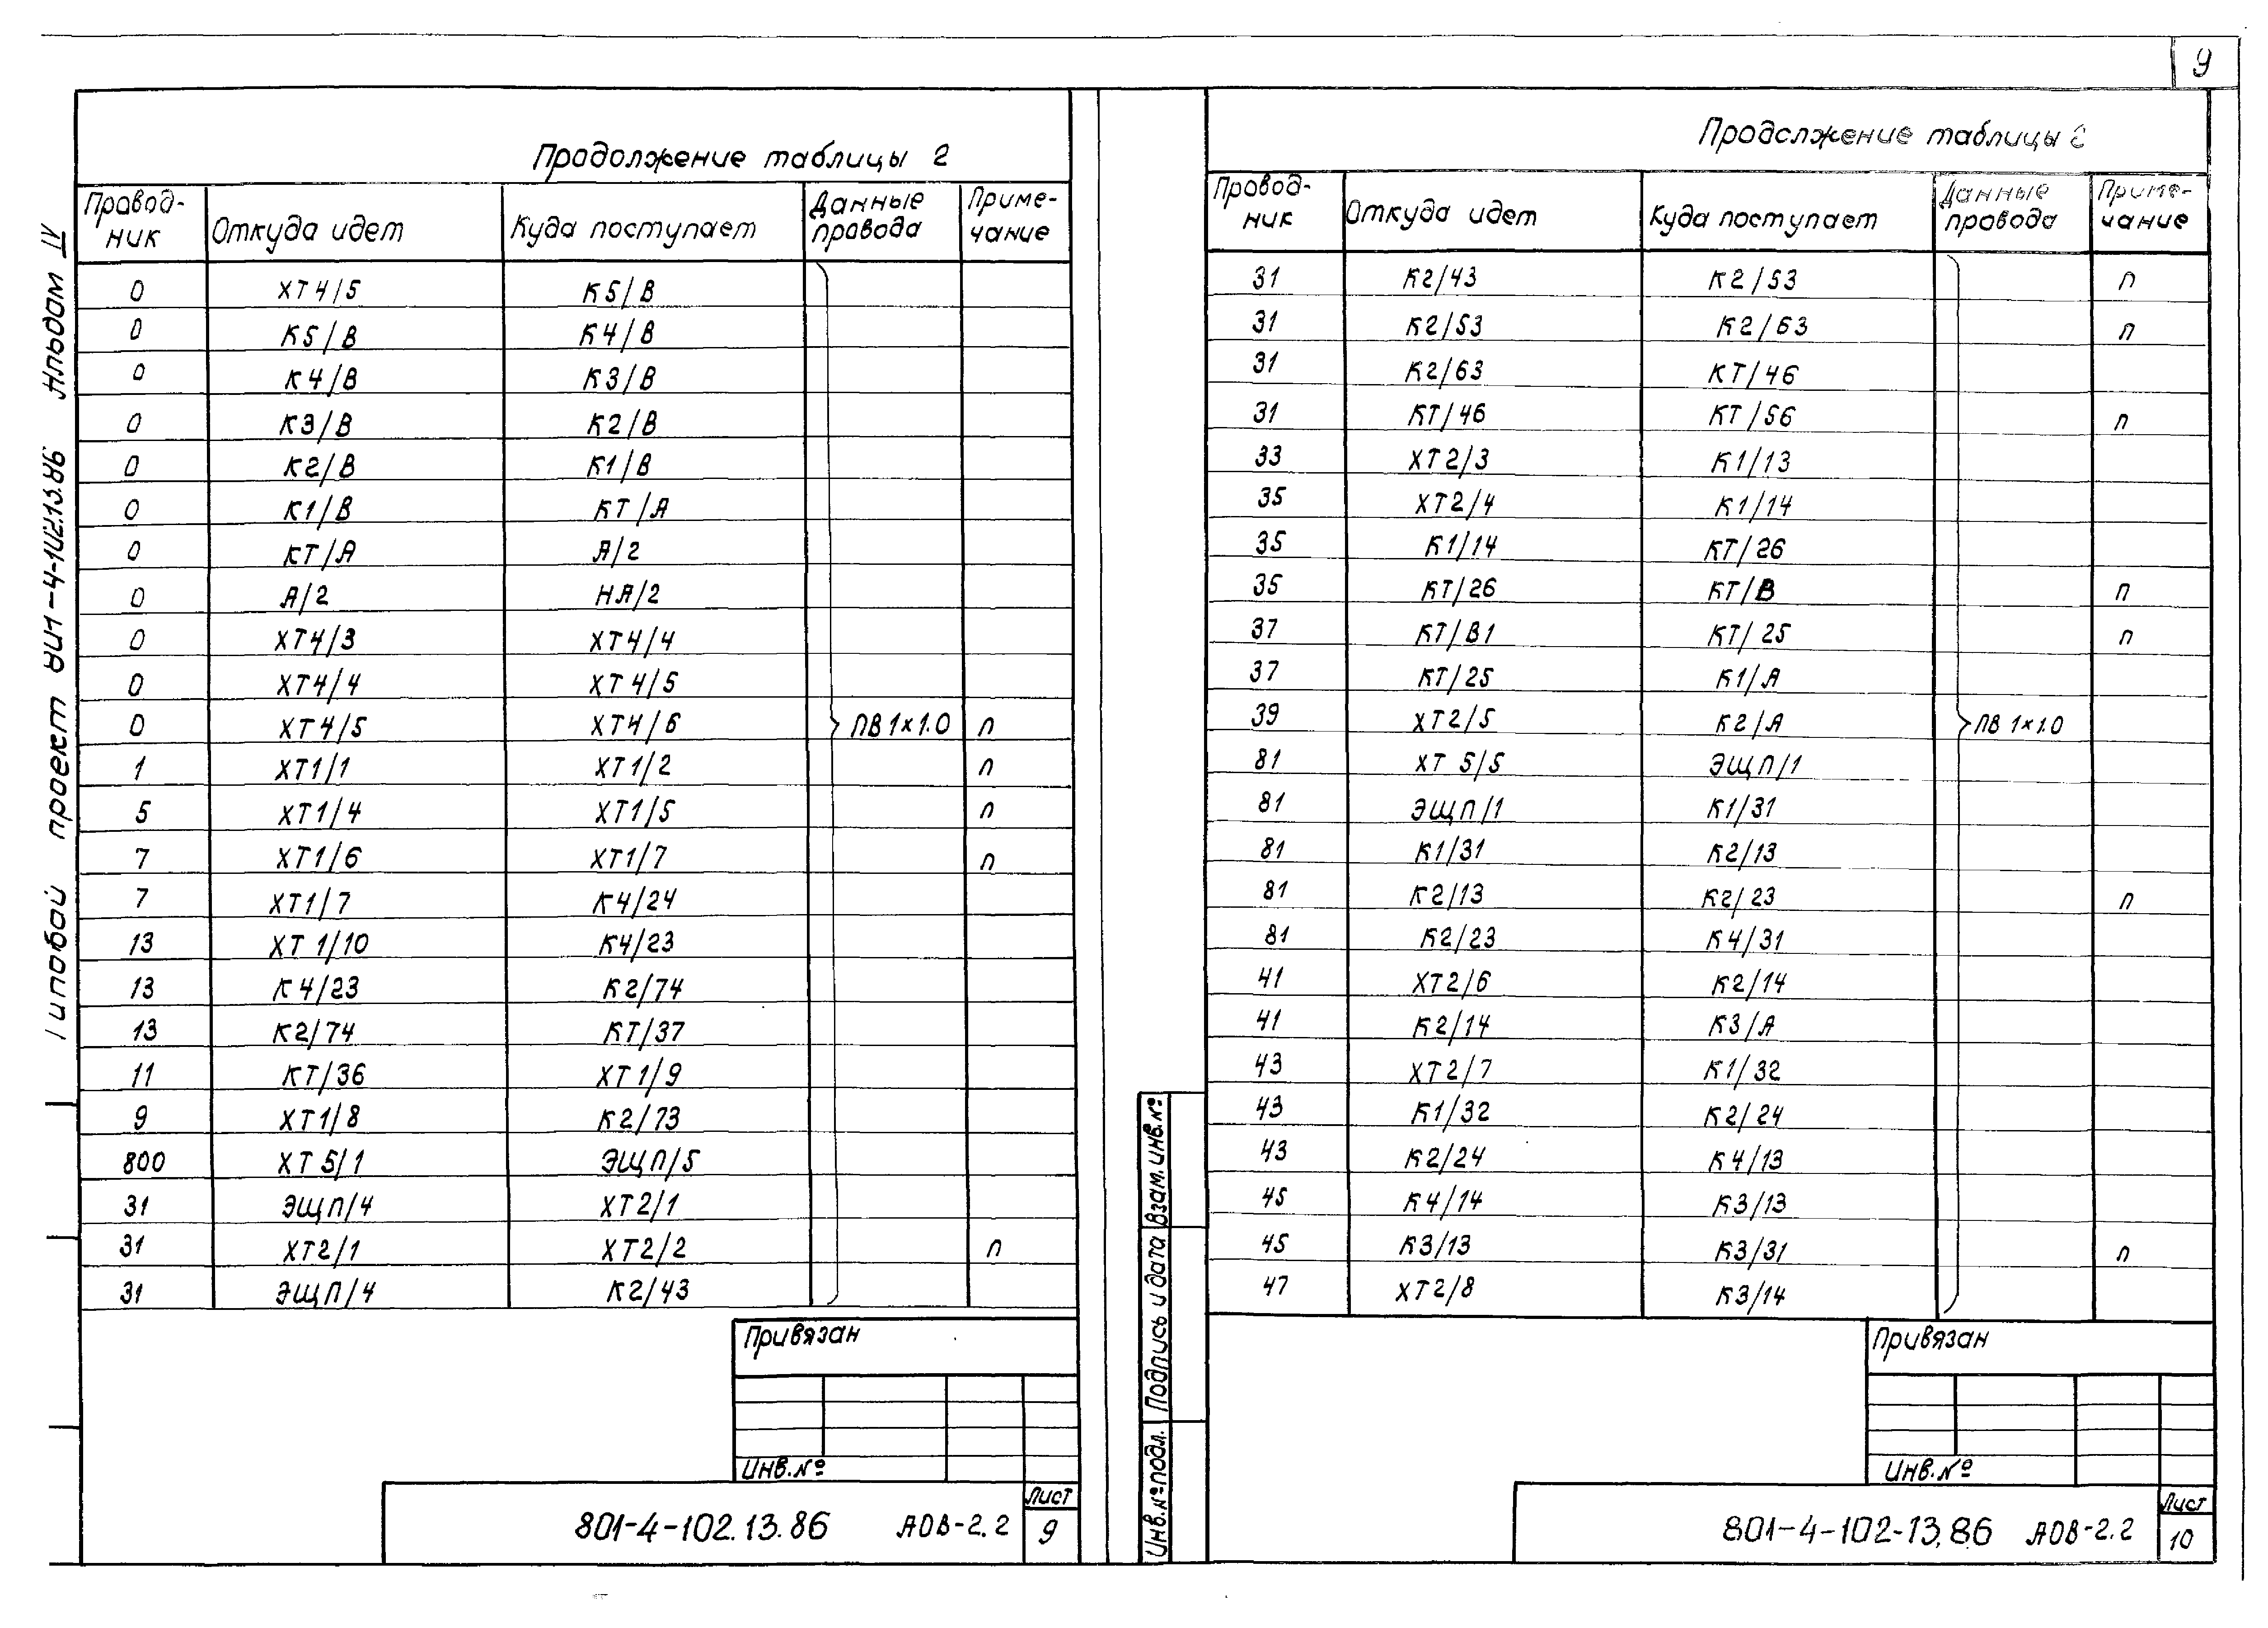 9
Типовой проект 801-4-102.13.86 Альбом IV
Продолжение таблицы 2
Провод-ник Откуда идет Куда поступает Данные провода Приме-чание
0 ХТ4/5 К5/В
0 К5/В К4/В
0 К4/В К3/В
0 К3/В К2/В
0 К2/В К1/В
0 К1/В КТ/А
0 КТ/А А/2
0 А/2 НА/2
0 ХТ4/3 ХТ4/4
0 ХТ4/4 ХТ4/5
0 ХТ4/5 ХТ4/6 ПВ 1х1.0 п
1 ХТ1/1 ХТ1/2 п
5 ХТ1/4 ХТ1/5 п
7 ХТ1/6 ХТ1/7 п
7 ХТ1/7 К4/24
13 ХТ 1/10 К4/23
13 К4/23 К2/74
13 К2/74 КТ/37
11 КТ/36 ХТ1/9
9 ХТ1/8 К2/73
800 ХТ5/1 ЭЩП/5
31 ЭЩП/4 ХТ2/1
31 ХТ2/1 ХТ2/2 п
31 ЭЩП/4 К2/43
Привязан
Инв.№
801-4-102.13.86 АОВ-2.2 Лист 9
Продолжение таблицы 2
Провод-ник Откуда идет Куда поступает Данные провода Приме-чание
31 К2/43 К2/53 п
31 К2/53 К2/63 п
31 К2/63 КТ/46
31 КТ/46 КТ/56 п
33 ХТ2/3 К1/13
35 ХТ2/4 К1/14
35 К1/14 КТ/26
35 КТ/26 КТ/В п
37 КТ/В1 КТ/25 п
37 КТ/25 К1/А
39 ХТ2/5 К2/А ПВ 1х1.0
81 ХТ 5/5 ЭЩП/1
81 ЭЩП/1 К1/31
81 К1/31 К2/13
81 К2/13 К2/23 п
81 К2/23 К4/31
41 ХТ2/6 К2/14
41 К2/14 К3/А
43 ХТ2/7 К1/32
43 К1/32 К2/24
43 К2/24 К4/13
45 К4/14 К3/13
45 К3/13 К3/31 п
47 ХТ2/8 К3/14
Привязан
Инв.№
Инв.№подл. Подпись и дата Взам.инв.№
801-4-102-13.86 АОВ-2.2 Лист 10